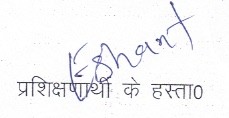 Eshant
प्रशिक्षणार्थी के हस्ता0